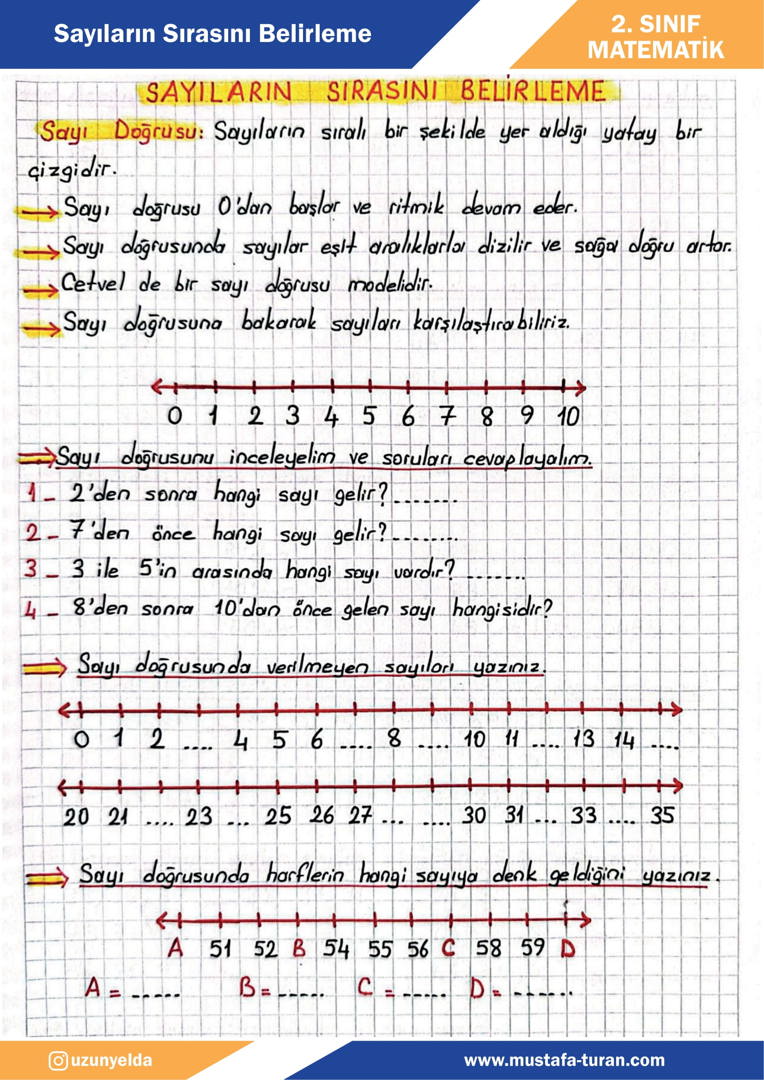 Sayıların Sırasını Belirleme
2. SINIF
MATEMATİK
SAYILARIN SIRASINI BELİRLEME
Sayı Doğrusu: Sayıların sıralı bir şekilde yer aldığı yatay bir
çizgidir.
→ Sayı doğrusu 0'dan başlar ve ritmik devam eder.
→ Sayı doğrusunda sayılar eşit aralıklarla dizilir ve sağa doğru artar.
→ Cetvel de bir sayı doğrusu modelidir.
→ Sayı doğrusuna bakarak sayıları karşılaştırabiliriz.
0 1 2 3 4 5 6 7 8 9 10
⇒ Sayı doğrusunu inceleyelim ve soruları cevaplayalım.
1- 2'den sonra hangi sayı gelir? .......
2- 7'den önce hangi sayı gelir? ........
3- 3 ile 5'in arasında hangi sayı vardır? .......
4- 8'den sonra 10'dan önce gelen sayı hangisidir?
⇒ Sayı doğrusunda verilmeyen sayıları yazınız.
0 1 2 .... 4 5 6 .... 8 .... 10 11 .... 13 14 ....
20 21 .... 23 ... 25 26 27 ... .... 30 31 ... 33 .... 35
⇒ Sayı doğrusunda harflerin hangi sayıya denk geldiğini yazınız.
A 51 52 B 54 55 56 C 58 59 D
A = ----- B = ----- C = ----- D = ------
uzunyelda
www.mustafa-turan.com